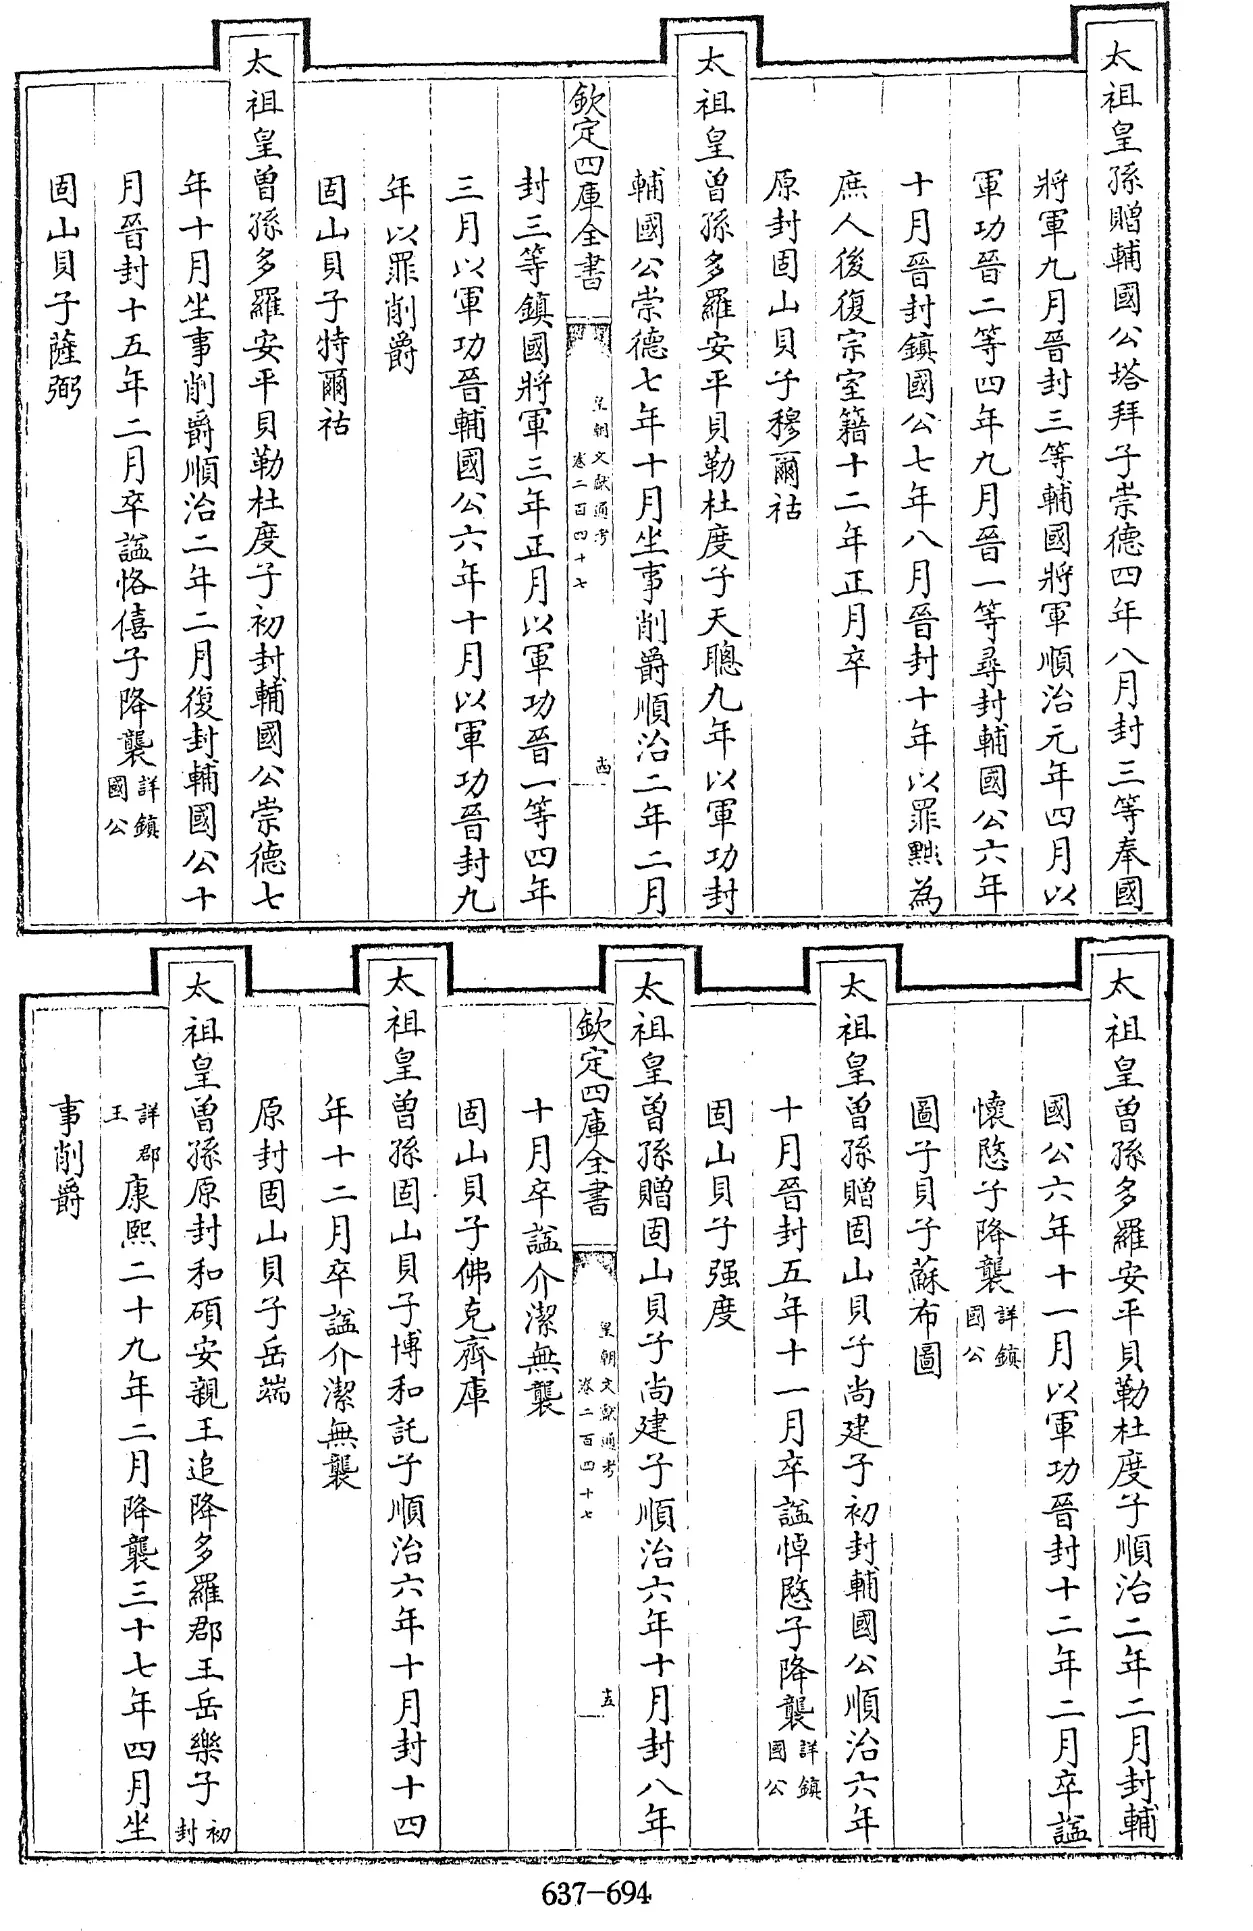 太祖皇孫贈輔國公塔拜子崇德四年八月封三等奉國
將軍九月晉封三等輔國將軍順治元年四月以
軍功晉二等四年九月晉一等尋封輔國公六年
十月晉封鎮國公七年八月晉封十年以罪黜為
庶人後復宗室籍十二年正月卒
原封固山貝子穆爾祜
太祖皇曾孫多羅安平貝勒杜度子天聰九年以軍功封
輔國公崇德七年十月坐事削爵順治二年二月
欽定四庫全書
皇朝文獻通考
卷二百四十七
十四
封三等鎮國將軍三年正月以軍功晉一等四年
三月以軍功晉輔國公六年十月以軍功晉封九
年以罪削爵
固山貝子特爾祜
太祖皇曾孫多羅安平貝勒杜度子初封輔國公崇德七
年十月坐事削爵順治二年二月復封輔國公十
月晉封十五年二月卒諡恪僖子降襲詳鎮國公
固山貝子薩弼
太祖皇曾孫多羅安平貝勒杜度子順治二年二月封輔
國公六年十一月以軍功晉封十二年二月卒諡
懷愍子降襲詳鎮國公
圖子貝子蘇布圖
太祖皇曾孫贈固山貝子尚建子初封輔國公順治六年
十月晉封五年十一月卒諡悼愍子降襲詳鎮國公
固山貝子强度
太祖皇曾孫贈固山貝子尚建子順治六年十月封八年
欽定四庫全書
皇朝文獻通考
卷二百四十七
十五
十月卒諡介潔無襲
固山貝子佛克齊庫
太祖皇曾孫固山貝子博和託子順治六年十月封十四
年十二月卒諡介潔無襲
原封固山貝子岳端
太祖皇曾孫原封和碩安親王追降多羅郡王岳樂子初封
詳郡王康熙二十九年二月降襲三十七年四月坐
事削爵
637-694